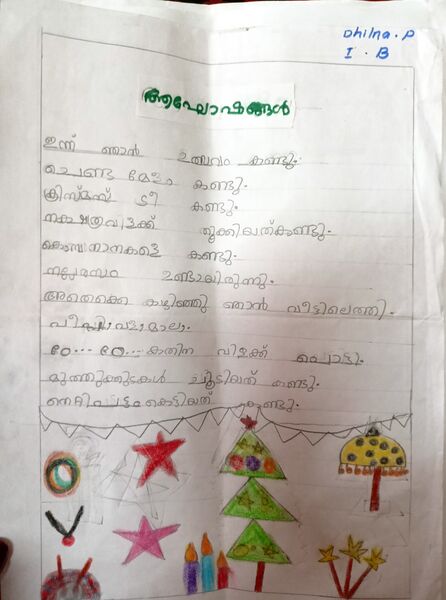 Dhilna. P
I. B
ആഘോഷങ്ങൾ
ഇന്ന് ഞാൻ ഉത്സവം കണ്ടു.
ചെണ്ട മേളം കണ്ടു.
ക്രിസ്മസ് ട്രീ കണ്ടു.
നക്ഷത്രവിളക്ക് തൂക്കിയത്കണ്ടു.
കൊമ്പനാനകളെ കണ്ടു.
നല്ലരസം ഉണ്ടായിരുന്നു.
അതൊക്കെ കഴിഞ്ഞു ഞാൻ വീട്ടിലെത്തി.
ഠോ... ഠോ... കതിന വിളക്ക് പൊട്ടി.
മുത്തുക്കുടകൾ ചൂടിയത് കണ്ടു.
നെറ്റിപ്പട്ടം കെട്ടിയത് കണ്ടു.